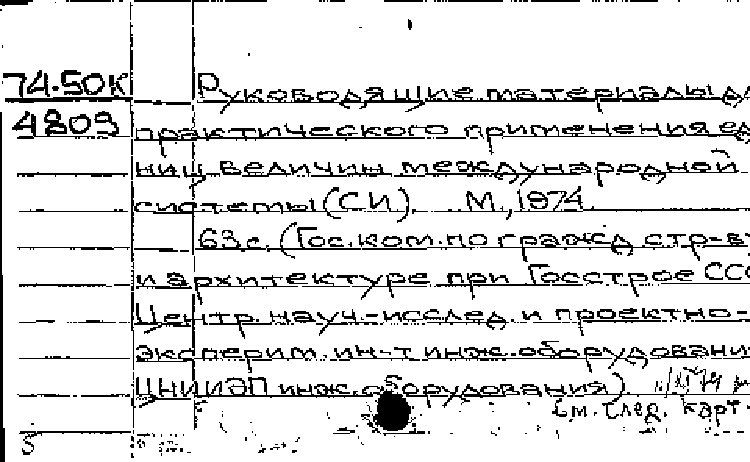 74-50К Руководящие материалы дл
4809 практического применения ед
ниц величин международной
системы (СИ). М., 1974.
63 с. (Гос. ком. по гражд. стр-ву
и архитектуре при Госстрое ССС
Центр. науч.-исслед. и проектно-
эксперим. ин-т инж. оборудовани
ЦНИИЭП инж. оборудования)
См. след. карт.
5